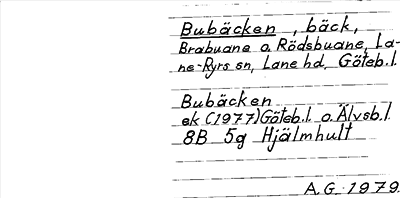 Bubäcken, bäck,
Brabuane o. Rödsbuane, La-
ne-Ryrs sn, Lane hd, Göteb.l.
Bubäcken
ek (1977) Göteb.l. o. Älvsb.l.
8B 5g Hjälmhult
A.G. 1979.